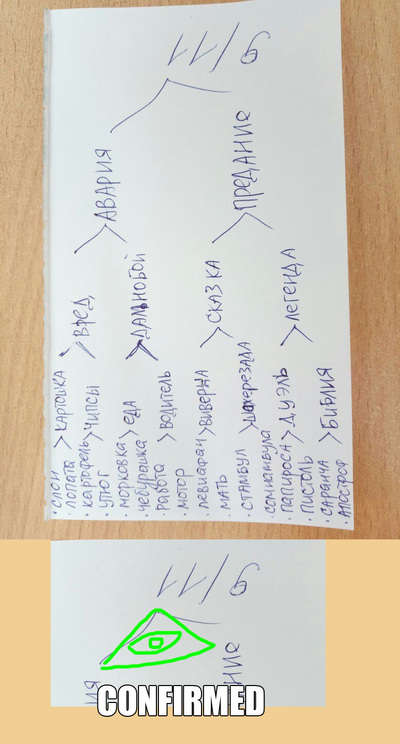 · слон
· лопата
· картофель
· утюг
· морковка
· чебурашка
· работа
· мотор
· левиафан
· мать
· стамбул
· сомнамбула
· папироса
· пистоль
· саранча
· апостроф
картошка
чипсы
еда
водитель
виверна
шахерезада
дуэль
библия
вред
дальнобой
сказка
легенда
авария
предание
9/11
9/11
ИЯ
НИЕ
CONFIRMED